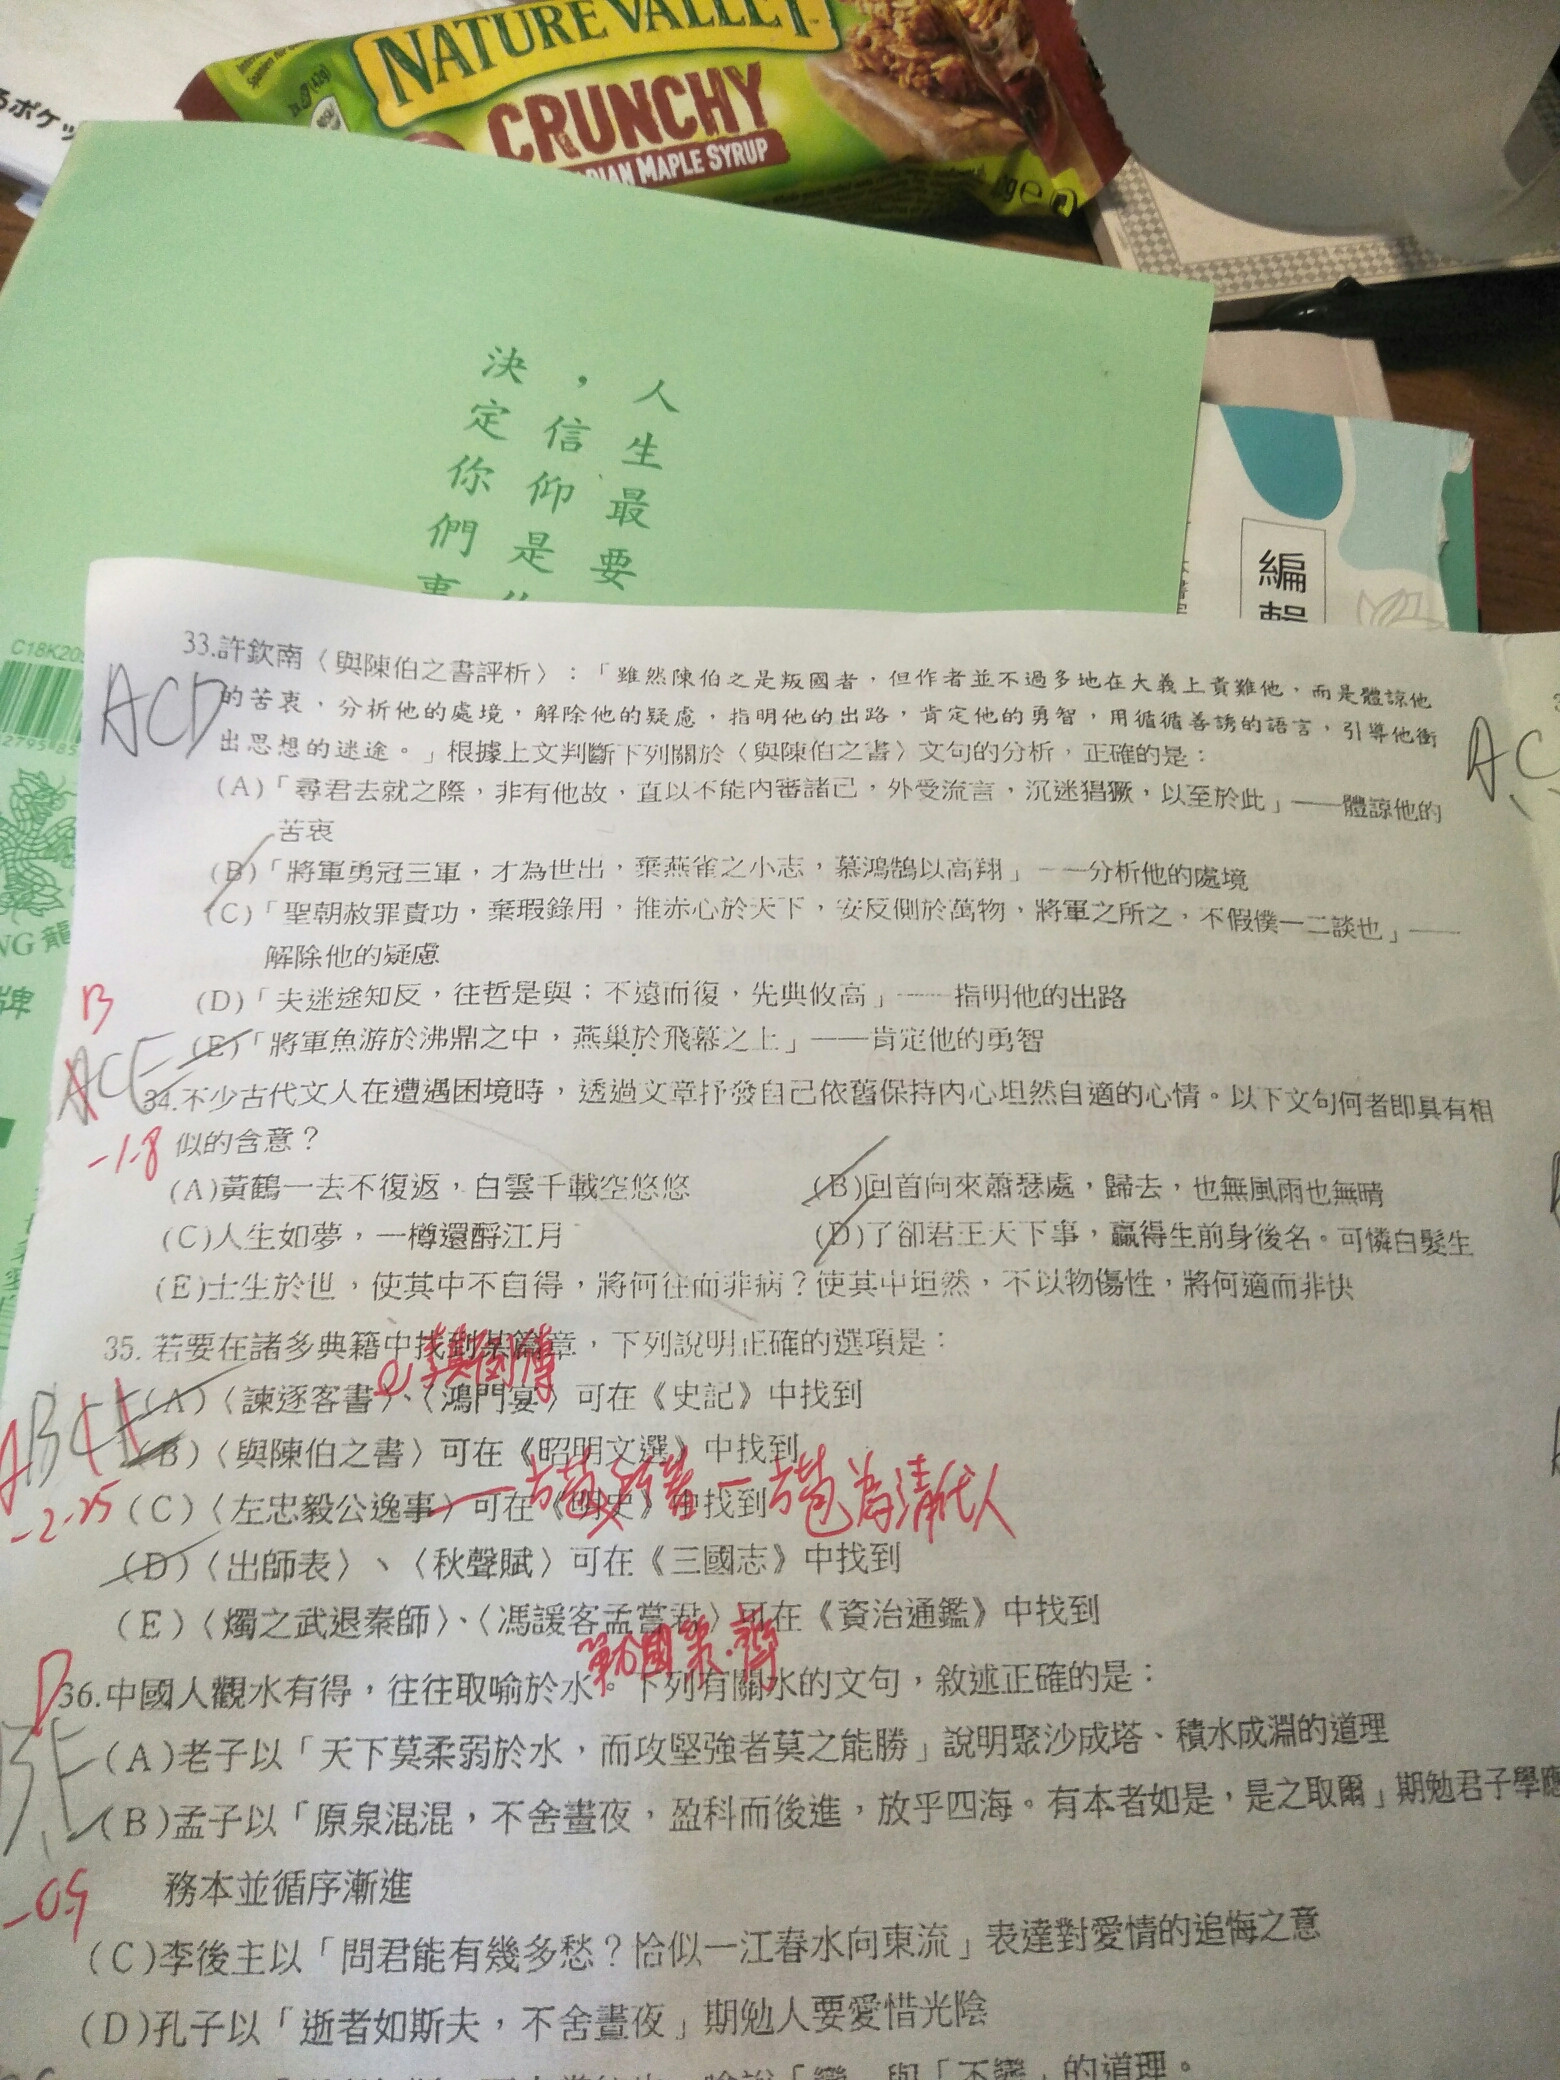 るポケッ
NATURE VALLEY
CRUNCHY
DIAN MAPLE SYRUP
人生最要
，信仰是
決定你們
編輯
C18K20
33.許欽南〈與陳伯之書評析〉：「雖然陳伯之是叛國者，但作者並不過多地在大義上責難他，而是體諒他
ACD
的苦衷，分析他的處境，解除他的疑慮，指明他的出路，肯定他的勇智，用循循善誘的語言，引導他衝
出思想的迷途。」根據上文判斷下列關於〈與陳伯之書〉文句的分析，正確的是：
AC
(A)「尋君去就之際，非有他故，直以不能內審諸己，外受流言，沉迷猖獗，以至於此」——體諒他的
苦衷
(B)「將軍勇冠三軍，才為世出，棄燕雀之小志，慕鴻鵠以高翔」——分析他的處境
(C)「聖朝赦罪責功，棄瑕錄用，推赤心於天下，安反側於萬物，將軍之所之，不假僕一二談也」——
解除他的疑慮
龍
牌
(D)「夫迷途知反，往哲是與；不遠而復，先典攸高」——指明他的出路
B
(E)「將軍魚游於沸鼎之中，燕巢於飛幕之上」——肯定他的勇智
ACE
34.不少古代文人在遭遇困境時，透過文章抒發自己依舊保持內心坦然自適的心情。以下文句何者即具有相
似的含意？
-1.8
(A)黃鶴一去不復返，白雲千載空悠悠
(B)回首向來蕭瑟處，歸去，也無風雨也無晴
(C)人生如夢，一樽還酹江月
(D)了卻君王天下事，贏得生前身後名。可憐白髮生
(E)士生於世，使其中不自得，將何往而非病？使其中坦然，不以物傷性，將何適而非快
35. 若要在諸多典籍中找到某篇章，下列說明正確的選項是：
(A)〈諫逐客書〉、〈鴻門宴〉可在《史記》中找到
ABCE
(B)〈與陳伯之書〉可在《昭明文選》中找到
-2.25
(C)〈左忠毅公逸事〉可在《明史》中找到
方苞為清代人
(D)〈出師表〉、〈秋聲賦〉可在《三國志》中找到
(E)〈燭之武退秦師〉、〈馮諼客孟嘗君〉可在《資治通鑑》中找到
戰國策·齊
D
36.中國人觀水有得，往往取喻於水。下列有關水的文句，敘述正確的是：
BE
(A)老子以「天下莫柔弱於水，而攻堅強者莫之能勝」說明聚沙成塔、積水成淵的道理
(B)孟子以「原泉混混，不舍晝夜，盈科而後進，放乎四海。有本者如是，是之取爾」期勉君子學應
務本並循序漸進
-0.9
(C)李後主以「問君能有幾多愁？恰似一江春水向東流」表達對愛情的追悔之意
(D)孔子以「逝者如斯夫，不舍晝夜」期勉人要愛惜光陰
「變」與「不變」的道理。